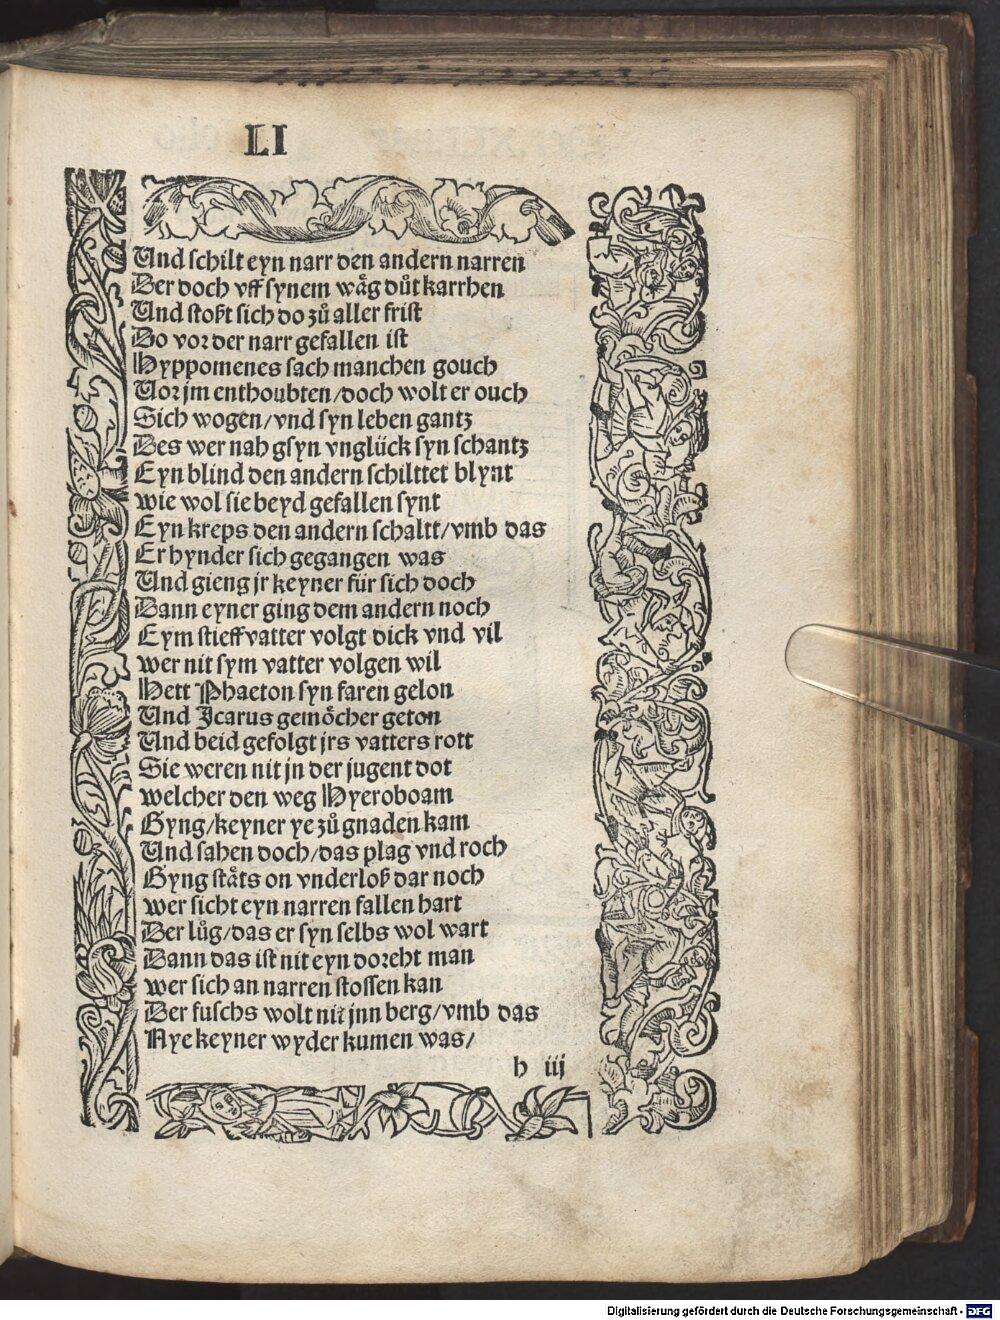 LI
Und schilt eyn narr den andern narren
Der doch vff synem wäg důt karrhen
Und stoßt sich do zů aller frist
Do vor der narr gefallen ist
Hyppomenes sach manchen gouch
Vor jm enthoubten/doch wolt er ouch
Sich wogen/vnd syn leben gantz
Des wer nah gsyn vnglück syn schantz
Eyn blind den andern schilttet blynt
wie wol sie beyd gefallen synt
Eyn kreps den andern schaltt/vmb das
Er hynder sich gegangen was
Und gieng jr keyner für sich doch
Dann eyner ging dem andern noch
Eym stieff vatter volgt dick vnd vil
wer nit sym vatter volgen wil
Hett Phaeton syn faren gelon
Und Icarus gemöcher geton
Und beid gefolgt jrs vatters rott
Sie weren nit jn der jugent dot
welcher den weg Hyeroboam
Gyng/keyner ye zů gnaden kam
Und sahen doch/das plag vnd roch
Gyng stäts on vnderloß dar noch
wer sicht eyn narren fallen hart
Der lůg/das er syn selbs wol wart
Dann das ist nit eyn doreht man
wer sich an narren stossen kan
Der fuschs wolt nit jnn berg/vmb das
Nye keyner wyder kumen was/
h iij
Digitalisierung gefördert durch die Deutsche Forschungsgemeinschaft - DFG